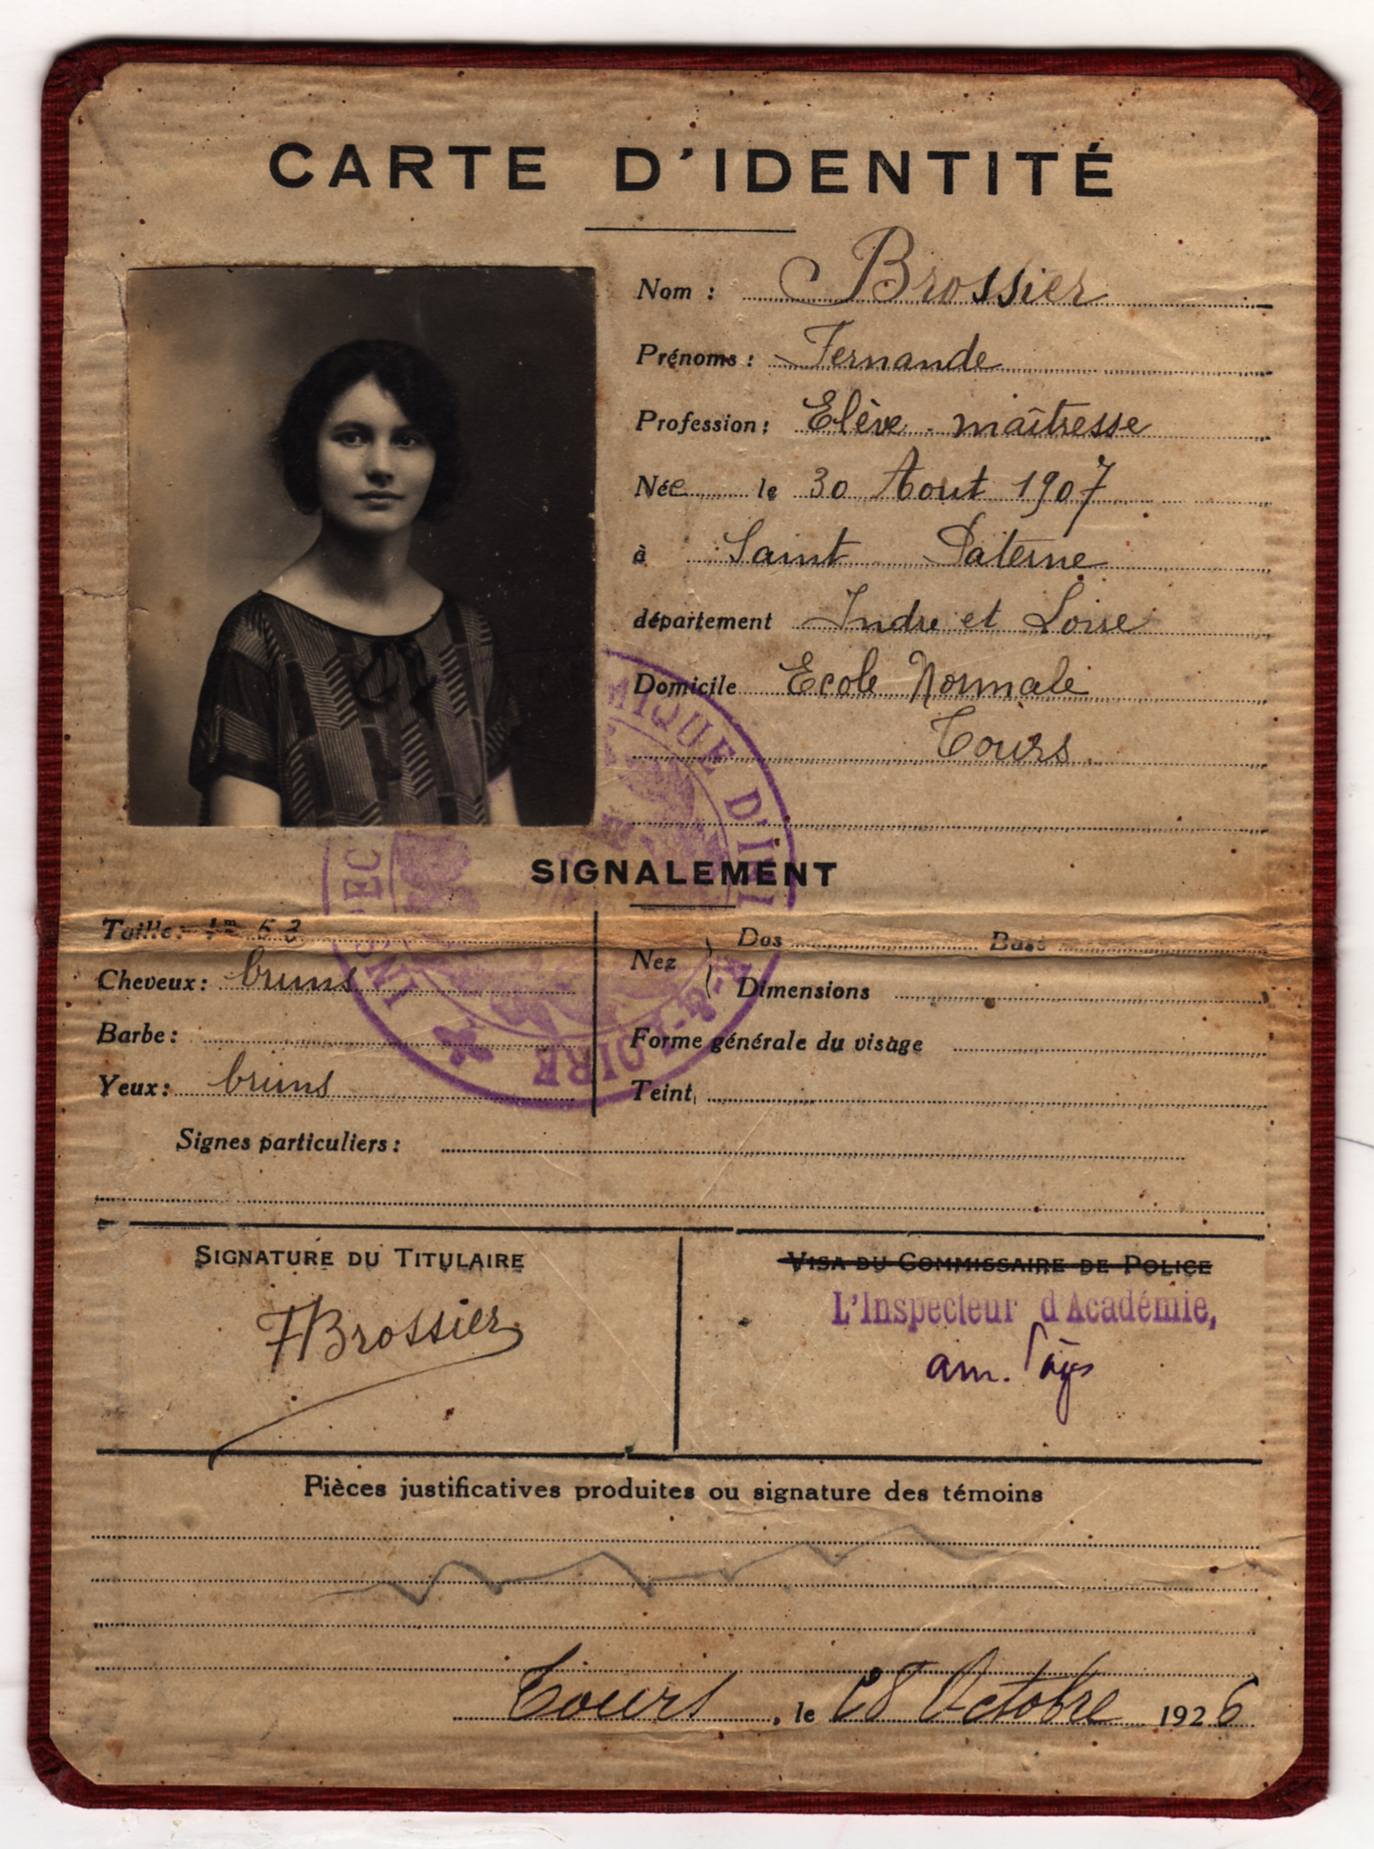 CARTE D'IDENTITÉ
Nom : Brossier
Prénoms : Fernande
Profession : Elève-maîtresse
Née le 30 Aout 1907
à Saint Paterne
département Indre et Loire
Domicile Ecole Normale
Tours
SIGNALEMENT
Taille : 1m 63
Cheveux : bruns
Barbe :
Yeux : bruns
Nez Dos Base
Dimensions
Forme générale du visage
Teint
Signes particuliers :
SIGNATURE DU TITULAIRE
FBrossier
VISA DU COMMISSAIRE DE POLICE
L'Inspecteur d'Académie,
Pièces justificatives produites ou signature des témoins
Tours, le 28 Octobre 1926